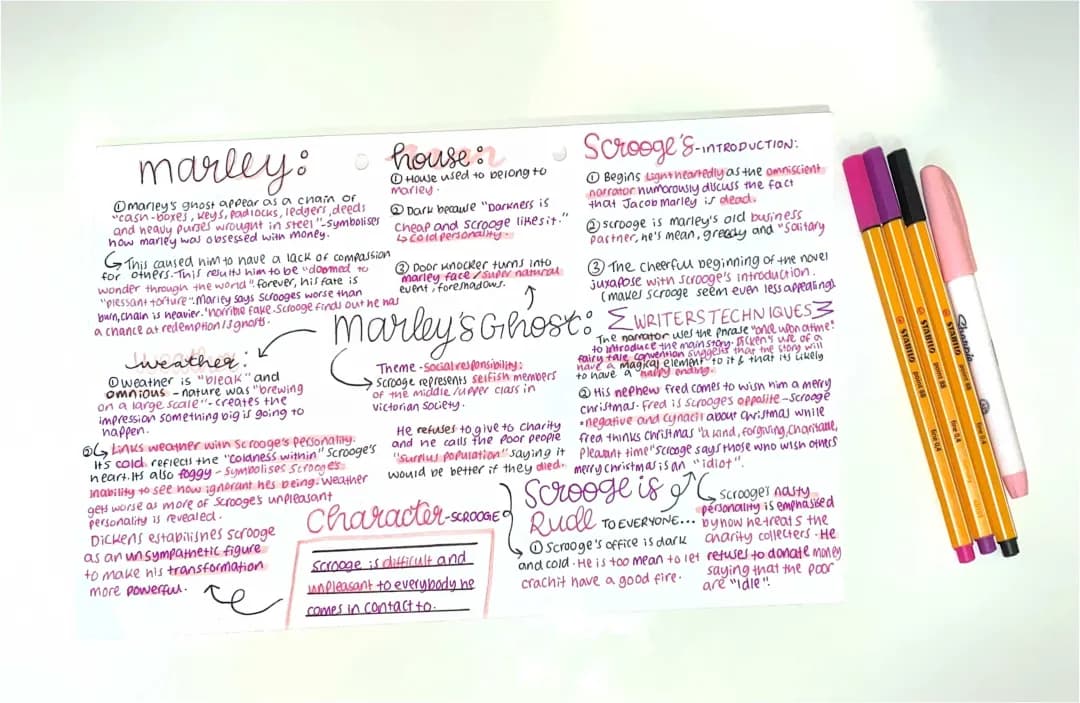 marley:
①marley's ghost appear as a chain of
"cash-boxes, keys, padlocks, ledgers, deeds
and heavy purses wrought in steel"-symbolises
how marley was obsessed with money.
This caused him to have a lack of compassion
for others. This results him to be "doomed to
wonder through the world" forever, his fate is
"plessant torture". Marley says Scrooges worse than
him, chain is heavier. 'horrible fake. Scrooge finds out he has
a chance at redemption/3 ghosts.
weather:
①weather is "bleak" and
omnious - nature was "brewing
on a large scale"- creates the
impression something big is going to
happen.
② Links weather with Scrooge's personality.
Its cold reflects the "coldness within" Scrooge's
heart. Its also foggy - symbolises Scrooges
inability to see how ignorant hes being. Weather
gets worse as more of Scrooge's unpleasant
personality is revealed.
Dickens establishes Scrooge
as an unsympathetic figure
to make his transformation
more powerful.
house:
① House used to belong to
marley.
② Dark because "Darkness is
cheap and Scrooge likes it."
↳ cold personality.
③ Door knocker turns into
marley face / super natural
event, foreshadows.
Marley's Ghost:
Theme - social responsibility:
Scrooge represents selfish members
of the middle/upper class in
Victorian Society.
He refuses to give to charity
and he calls the poor people
"surplus population" saying it
would be better if they died.
Character-SCROOGE
Scrooge is difficult and
unpleasant to everybody he
comes in contact to.
Scrooge's-INTRODUCTION:
① Begins lightheartedly as the omniscient
narrator humorously discuss the fact
that Jacob Marley is dead.
② scrooge is marley's old business
partner, he's mean, greedy and "solitary
③ The cheerful beginning of the novel
juxapose with scrooge's introduction.
(makes scrooge seem even less appealing)
WRITERS TECHNIQUES
The narrator uses the phrase "once upon a time"
to introduce the main story. Dicken's use of a
fairy tale convention suggests that the story will
have a magical element to it & that its likely
to have a "happy ending.
② His nephew Fred comes to wish him a merry
christmas. Fred is scrooges opposite - scrooge
negative and cynacil about Christmas while
Fred thinks Christmas "a kind, forgiving, charitable,
pleasant time" scrooge says those who wish others
merry christmas is an "idiot".
Scrooge is
Rude TO EVERYONE...
① Scrooge's office is dark
and cold. He is too mean to let
crachit have a good fire.
Scrooge's nasty
personality is emphasised
by how he treats the
charity collecters. He
refuses to donate money
saying that the poor
are "idle".
STABILO point 88 fine 0,4
STABILO point 88 fine 0,4
STABILO point 88 fine 0,4
Sharpie